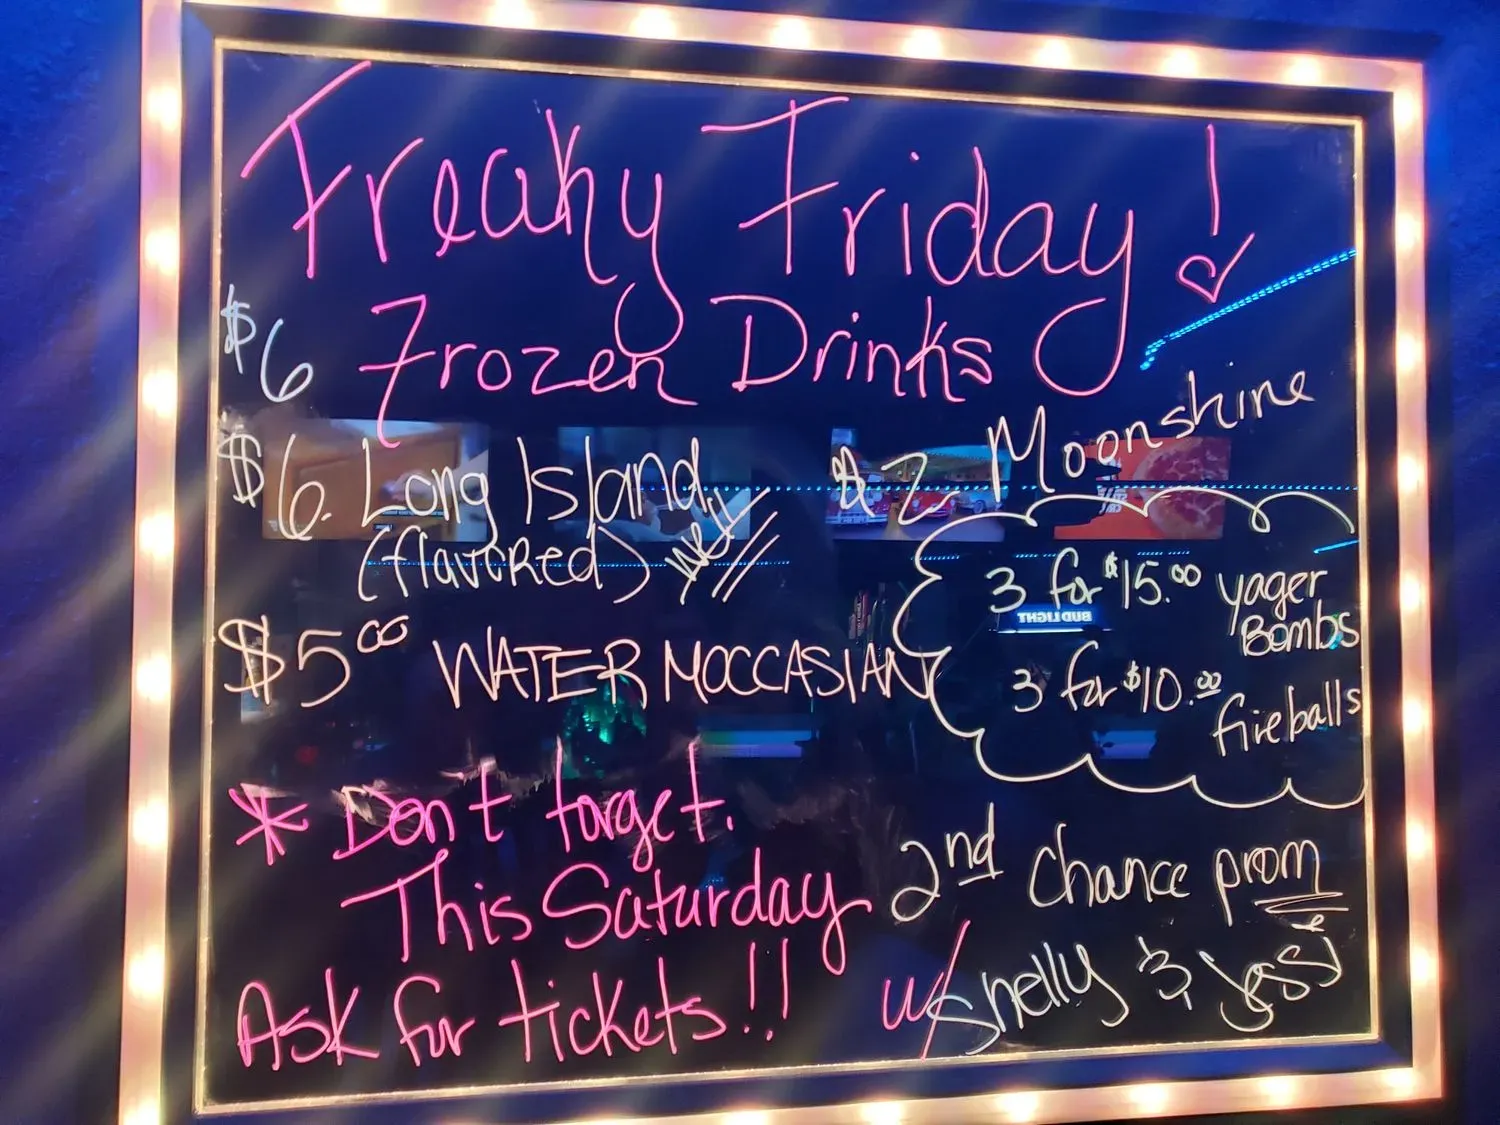 Freaky Friday!
$6 Frozen Drinks
$6. Long Island
(flavored)
$5.00 WATER MOCCASIAN
$2 Moonshine
3 for $15.00 yager
Bombs
3 for $10.00
fireballs
BUD LIGHT
* Don't forget.
This Saturday 2nd Chance prom
Ask for tickets!! w/ Shelly & Jess